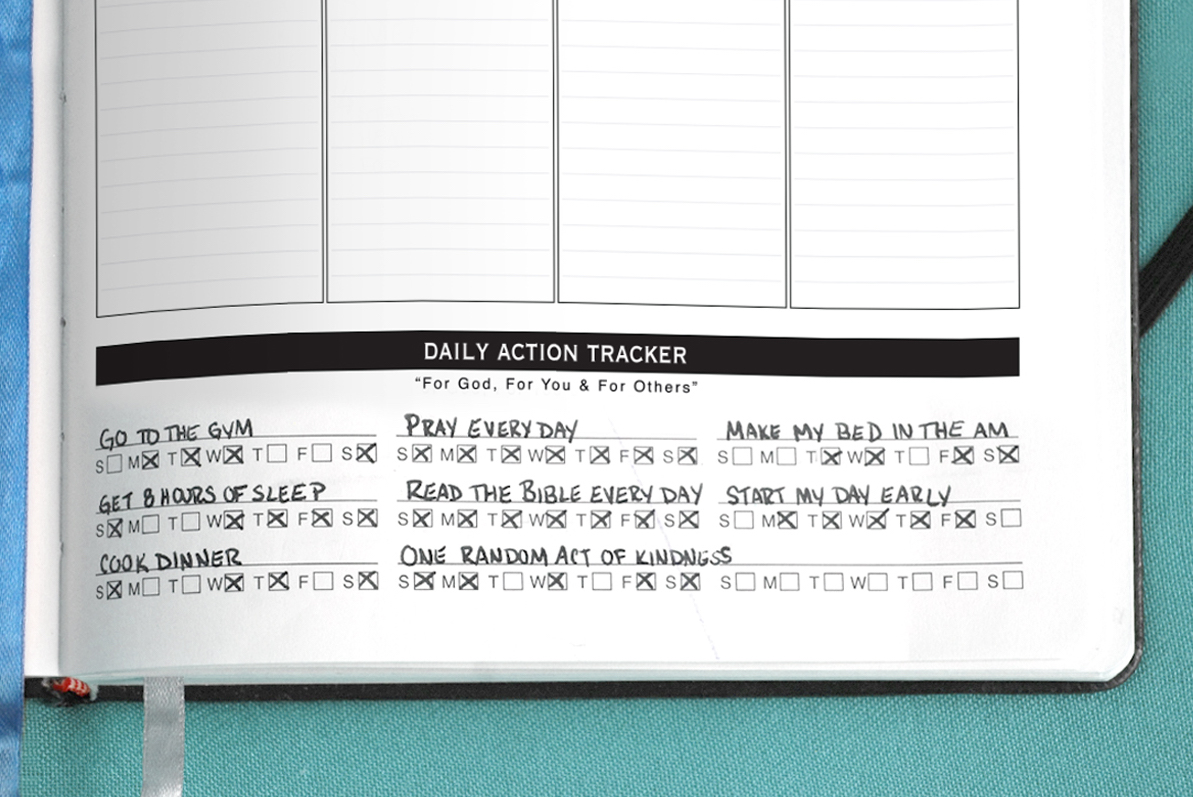 DAILY ACTION TRACKER
“For God, For You & For Others”
GO TO THE GYM
S☐ M☒ T☒ W☒ T☐ F☐ S☒
PRAY EVERY DAY
S☒ M☒ T☒ W☒ T☒ F☒ S☒
MAKE MY BED IN THE AM
S☐ M☐ T☒ W☒ T☐ F☒ S☒
GET 8 HOURS OF SLEEP
S☒ M☐ T☐ W☒ T☒ F☒ S☒
READ THE BIBLE EVERY DAY
S☒ M☒ T☒ W☒ T☒ F☒ S☒
START MY DAY EARLY
S☐ M☒ T☒ W☒ T☒ F☒ S☐
COOK DINNER
S☒ M☐ T☐ W☒ T☒ F☐ S☒
ONE RANDOM ACT OF KINDNESS
S☒ M☒ T☐ W☒ T☐ F☒ S☒
S☐ M☐ T☐ W☐ T☐ F☐ S☐